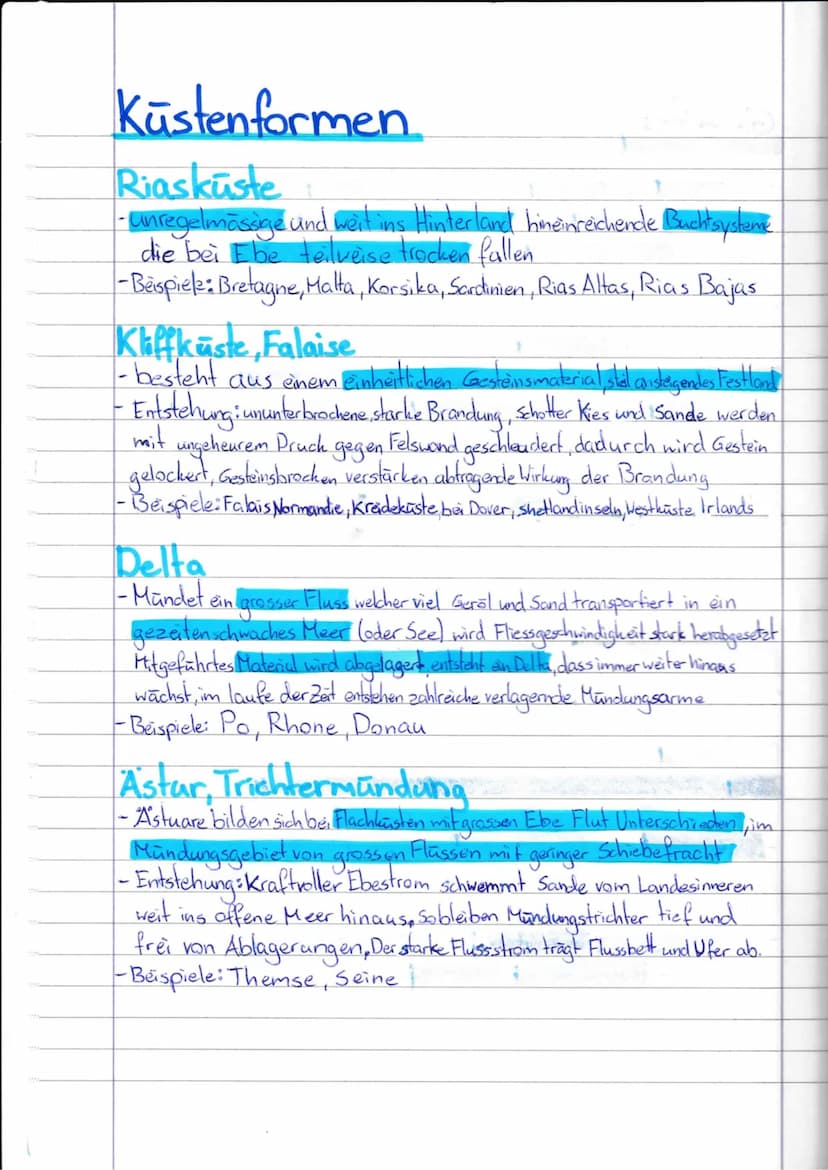 Küstenformen
Riasküste
- unregelmässige und weit ins Hinterland hineinreichende Buchtsysteme
die bei Ebe teilweise trocken fallen
- Beispiele: Bretagne, Malta, Korsika, Sardinien, Rias Altas, Rias Bajas
Kliffküste, Falaise
- besteht aus einem einheitlichen Gesteinsmaterial, steil ansteigendes Festland
- Entstehung: ununterbrochene, starke Brandung, Schotter Kies und Sande werden
mit ungeheurem Druck gegen Felswand geschleudert, dadurch wird Gestein
gelockert, Gesteinsbrocken verstärken abtragende Wirkung der Brandung
- Beispiele: Falais Normandie, Kreideküste bei Dover, Shetlandinseln, Westküste Irlands
Delta
- Mündet ein grosser Fluss welcher viel Geröl und Sand transportiert in ein
gezeitenschwaches Meer (oder See) wird Fliessgeschwindigkeit stark herabgesetzt
Mitgeführtes Material wird abgelagert, entsteht ein Delta, dass immer weiter hinaus
wächst, im laufe der Zeit entstehen zahlreiche verlagernde Mündungsarme
- Beispiele: Po, Rhone, Donau
Ästur, Trichtermündung
- Ästuare bilden sich bei Flachküsten mit grossen Ebe Flut Unterschieden, im
Mündungsgebiet von grossen Flüssen mit geringer Schiebefracht
- Entstehung: Kraftvoller Ebestrom schwemmt Sande vom Landesinneren
weit ins offene Meer hinaus, so bleiben Mündungstrichter tief und
frei von Ablagerungen, Der starke Flussstrom trägt Flussbett und Ufer ab.
- Beispiele: Themse, Seine